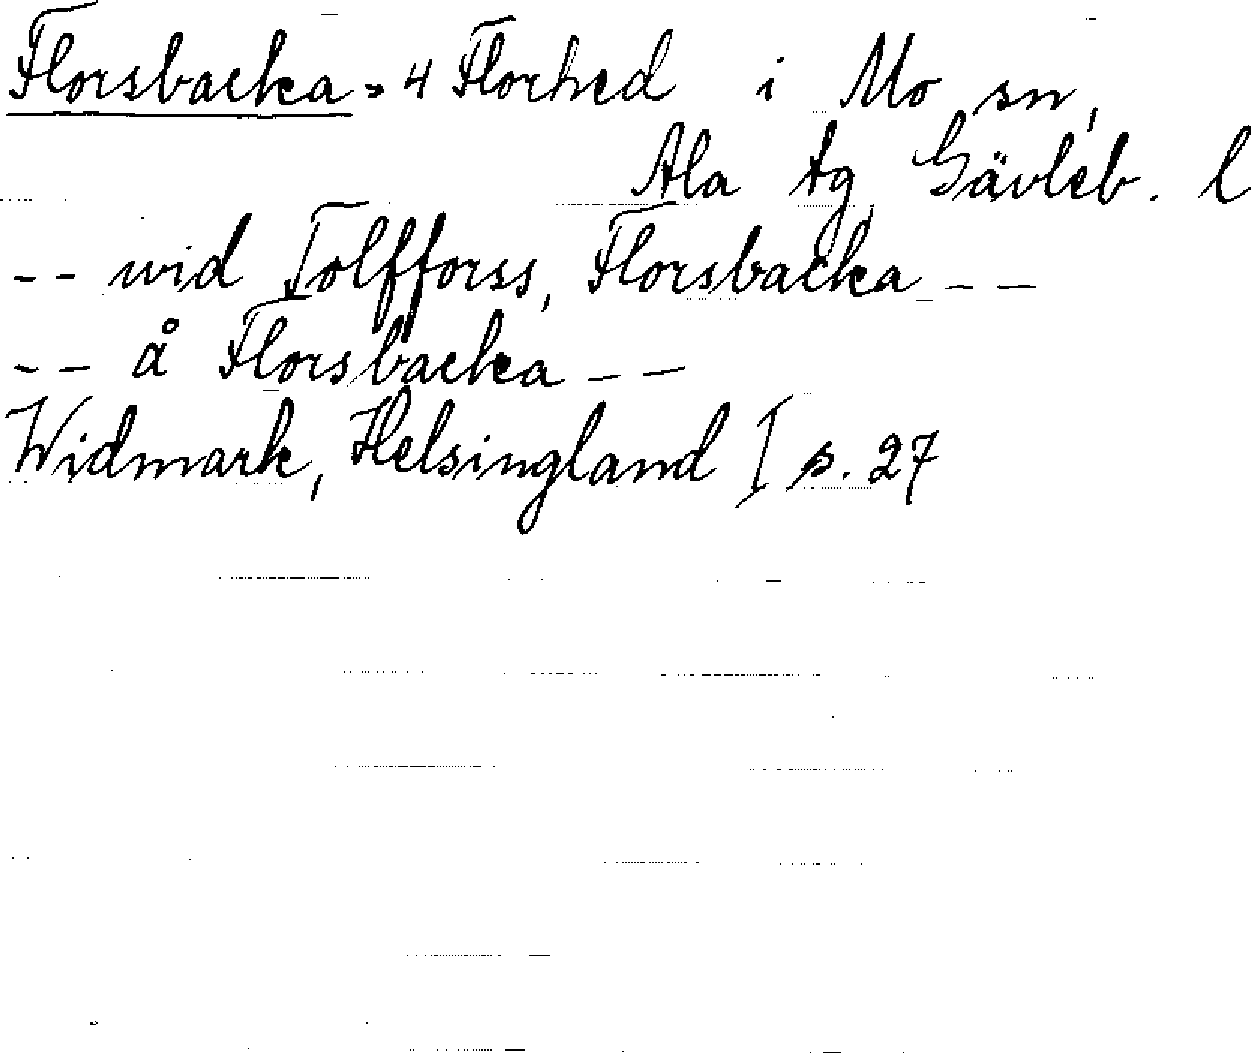 Florsbacka = 4 Florhed i Mo sn,
Ala tg, Gävleb. l
-- wid Tolfforss, Florsbacka --
-- å Florsbacka --
Widmark, Helsingland I s. 27